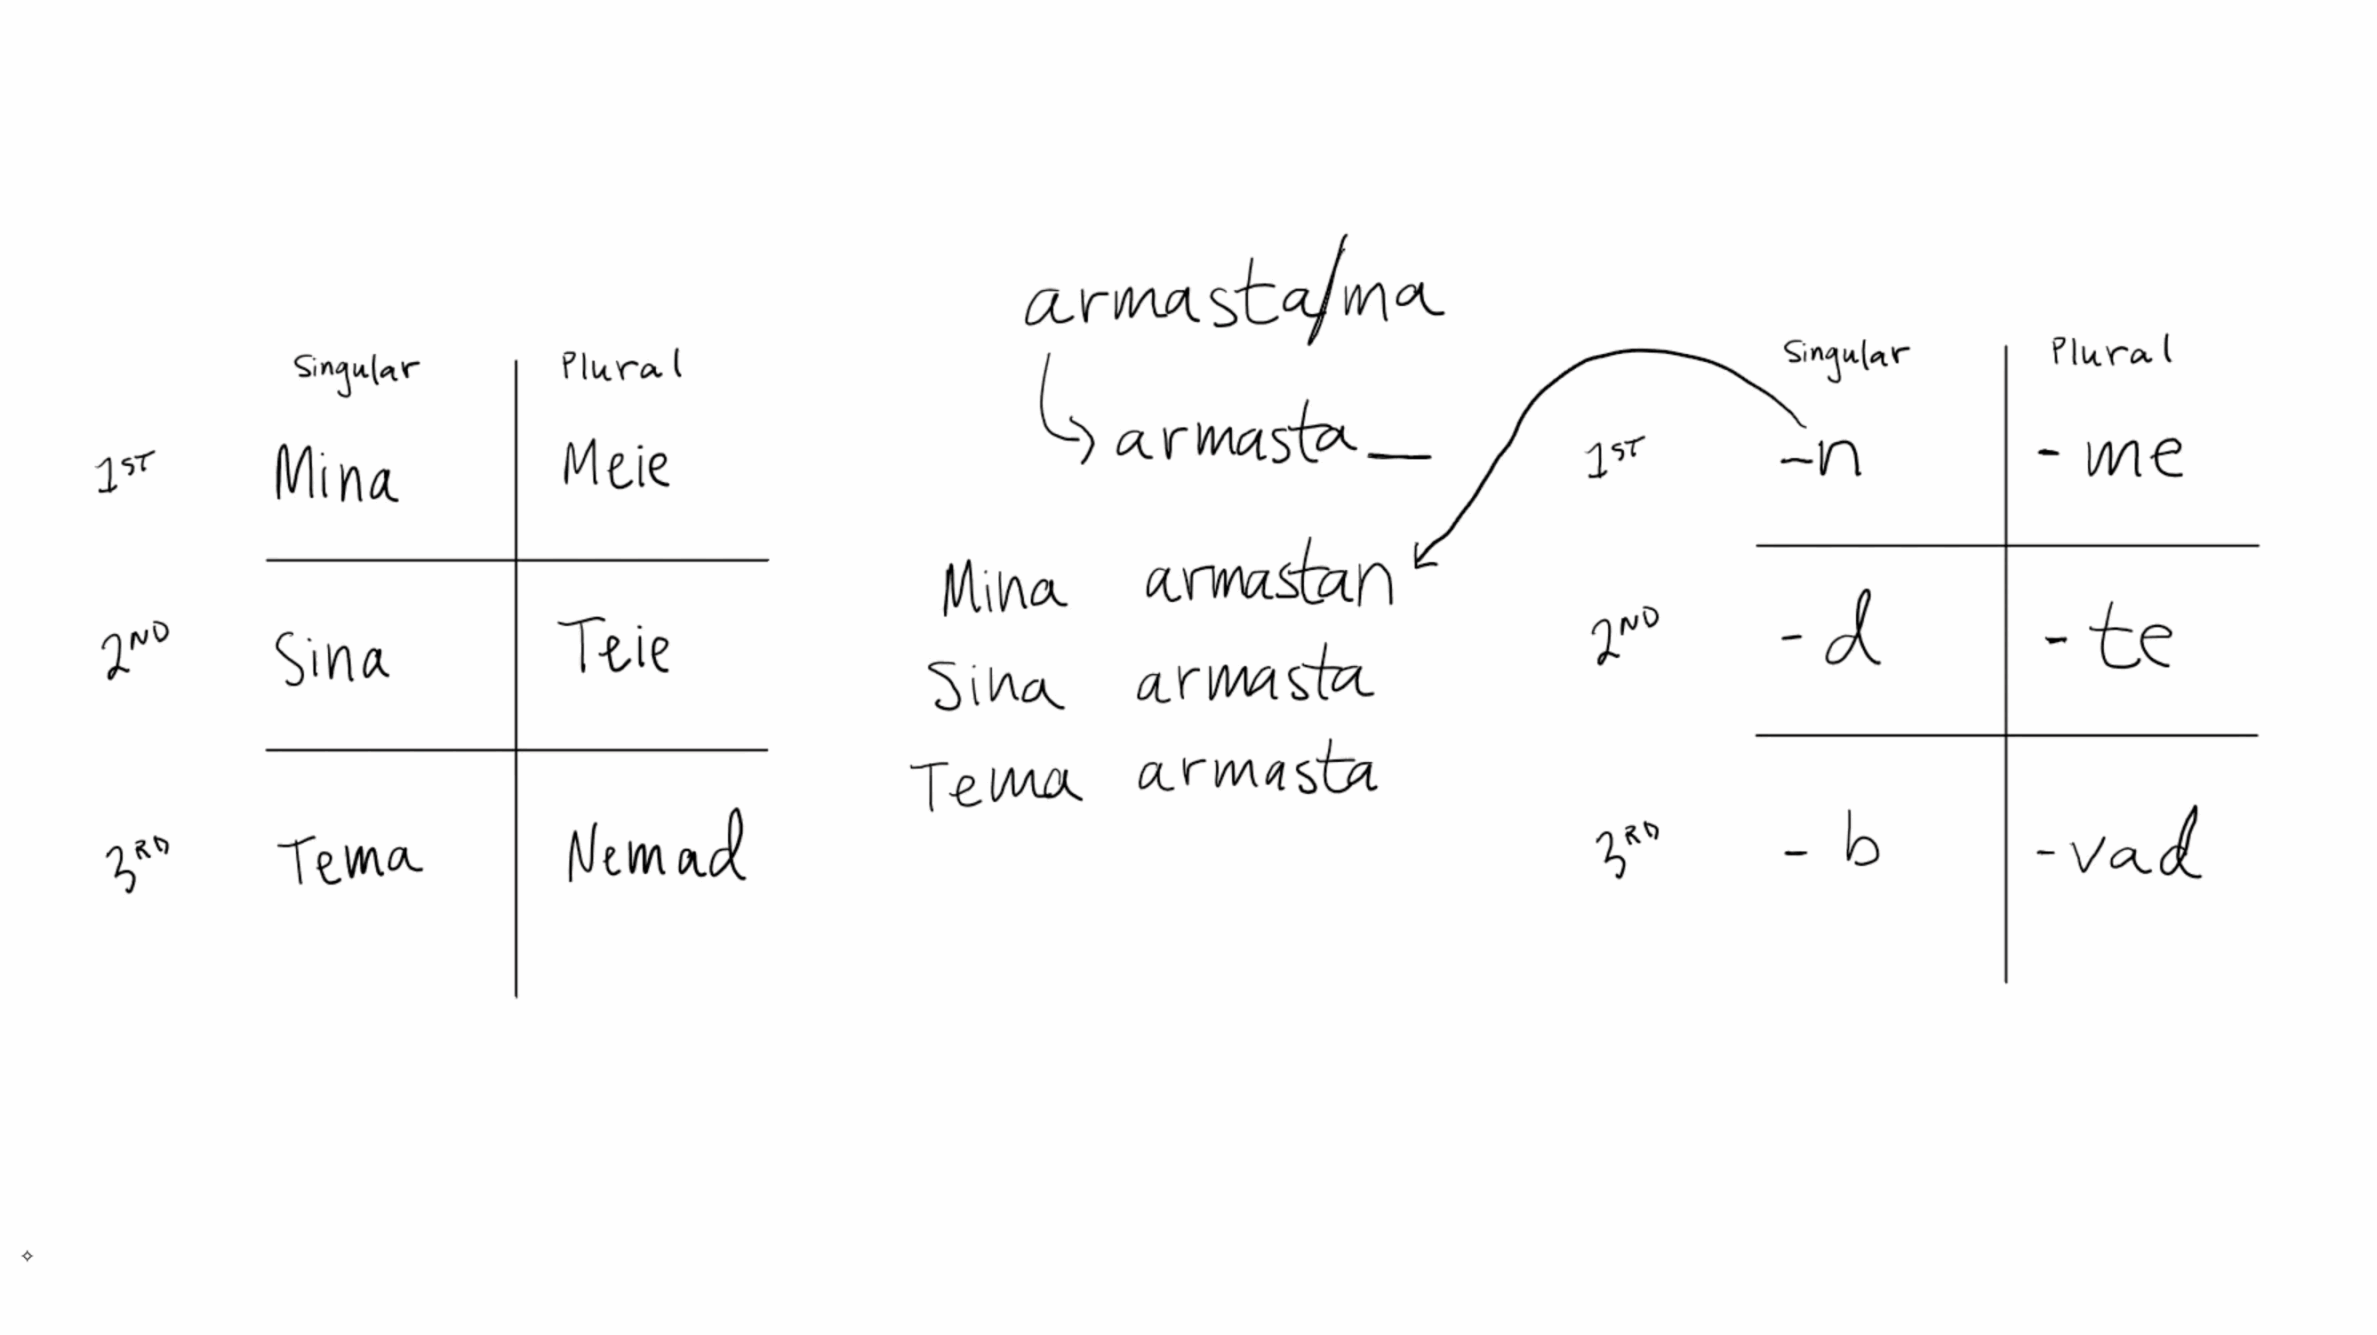 Singular Plural
1ST Mina Meie
2ND Sina Teie
3RD Tema Nemad
armasta/ma
armasta_
Mina armastan
Sina armasta
Tema armasta
Singular Plural
1ST -n -me
2ND -d -te
3RD -b -vad